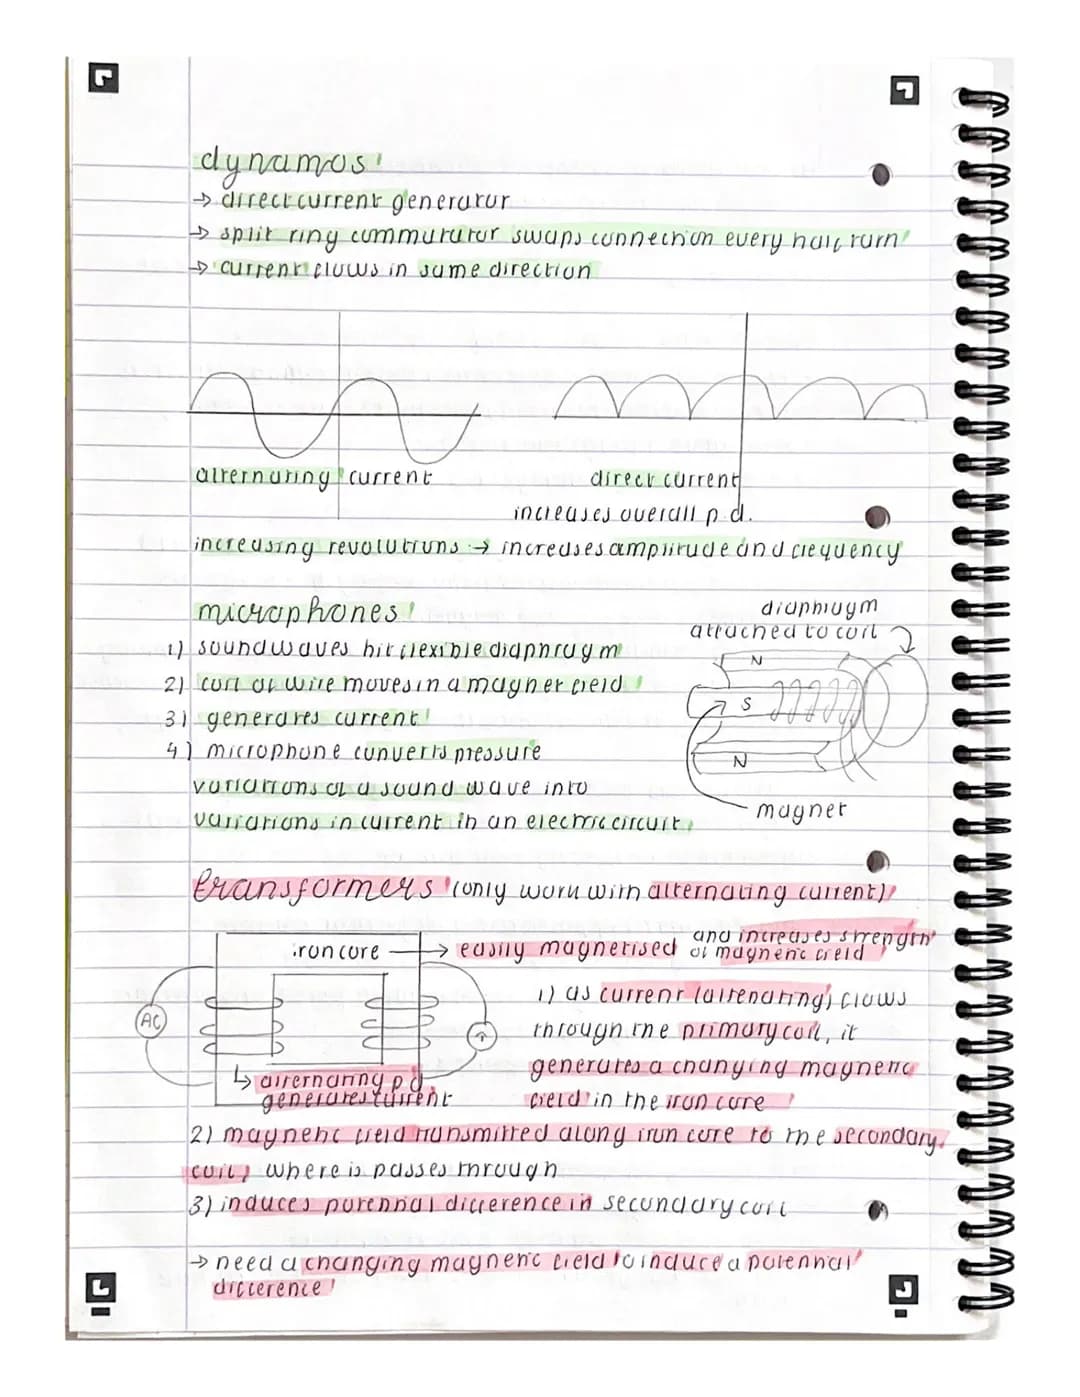 dynamos
→ direct current generator
→ split ring commutator swaps connection every half turn
→ current flows in same direction
alternating current
direct current
increases overall p.d.
increasing revolutions → increases amplitude and frequency
microphones
diaphragm
attached to coil
1) soundwaves hit flexible diaphragm
N
2) coil of wire moves in a magnet field
S
3) generates current
4) microphone converts pressure
N
variations of a sound wave into
variations in current in an electric circuit
magnet
transformers (only work with alternating current)
iron core → easily magnetised and increases strength
of magnetic field
1) as current (altenating) flows
AC
through the primary coil, it
generates a changing magnetic
↳ alternating p.d.
generates current
field in the iron core
2) magnetic field transmitted along iron core to the secondary
coil, where is passes through
3) induces potential difference in secondary coil
→ need a changing magnetic field to induce a potential
difference